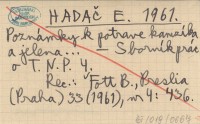 HADAČ E. 1961.
Poznámky k potravě kamzíka
a jelena... Sborník prac
o T.N.P. 4.
Rec.: Fott B., Preslia
(Praha) 33 (1961), nr 4: 436.